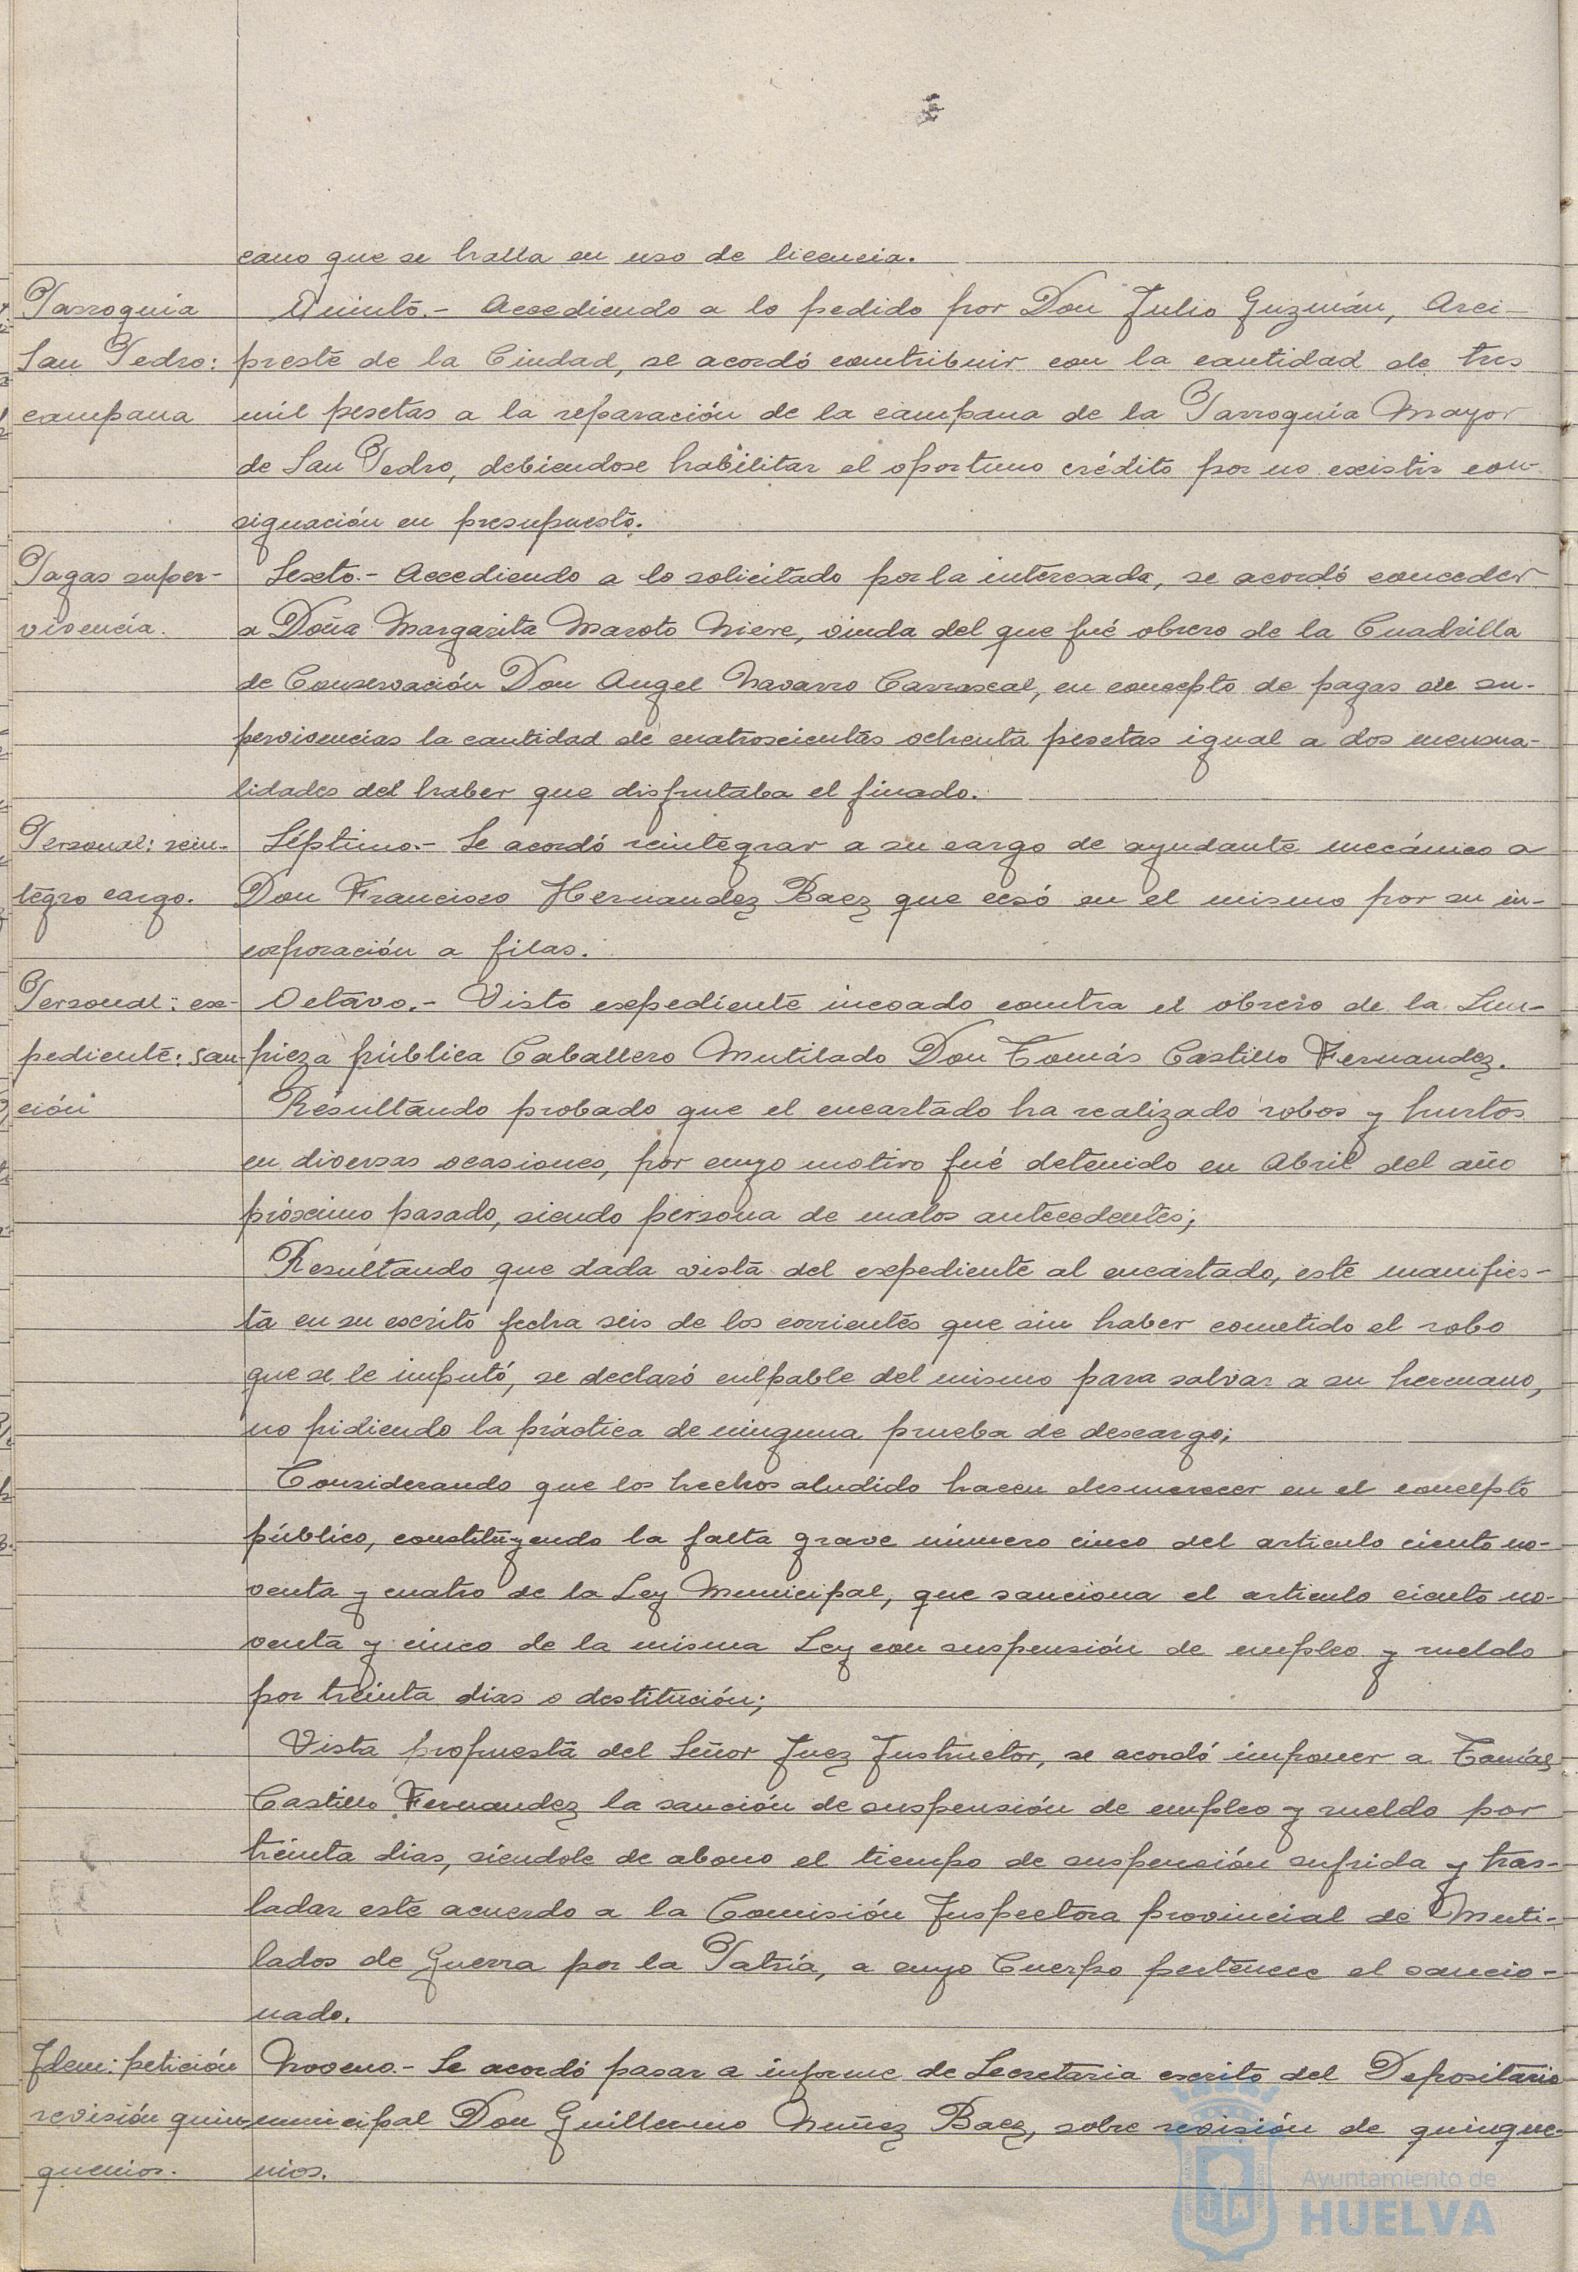 cano que se halla en uso de licencia.
Parroquia
San Pedro:
campana
Quinto.- Accediendo a lo pedido por Don Julio Guzmán, Arci-
preste de la Ciudad, se acordó contribuir con la cantidad de tres
mil pesetas a la reparación de la campana de la Parroquia Mayor
de San Pedro, debiendose habilitar el oportuno crédito por no existir con-
signación en presupuesto.
Pagas super-
vivencia.
Sexto.- Accediendo a lo solicitado por la interesada, se acordó conceder
a Doña Margarita Maroto Nieve, viuda del que fué obrero de la Cuadrilla
de Conservación Don Angel Navarro Carrascal, en concepto de pagas de su-
pervivencias la cantidad de cuatroscientas ochenta pesetas igual a dos mensua-
lidades del haber que disfrutaba el finado.
Personal: rein-
tegro cargo.
Séptimo.- Se acordó reintegrar a su cargo de ayudante mecánico a
Don Francisco Hernandez Baez que cesó en el mismo por su in-
corporación a filas.
Personal: ex-
pediente: san-
ción
Octavo.- Visto expediente incoado contra el obrero de la Lim-
pieza pública Caballero Mutilado Don Tomás Castillo Fernandez.
Resultando probado que el encartado ha realizado robos y hurtos
en diversas ocasiones, por cuyo motivo fué detenido en Abril del año
próximo pasado, siendo persona de malos antecedentes;
Resultando que dada vista del expediente al encartado, este manifies-
ta en su escrito fecha seis de los corrientes que sin haber cometido el robo
que se le imputó, se declaró culpable del mismo para salvar a su hermano,
no pidiendo la práctica de ninguna prueba de descargo;
Considerando que los hechos aludido hacen desmerecer en el concepto
público, constituyendo la falta grave número cinco del articulo ciento no-
venta y cuatro de la Ley Municipal, que sanciona el articulo ciento no-
venta y cinco de la misma Ley con suspensión de empleo y sueldo
por treinta dias o destitución;
Vista propuesta del Señor Juez Instructor, se acordó imponer a Tomás
Castillo Fernandez la sanción de suspensión de empleo y sueldo por
treinta dias, siendole de abono el tiempo de suspensión sufrida y tras-
ladar este acuerdo a la Comisión Inspectora provincial de Muti-
lados de Guerra por la Patria, a cuyo Cuerpo pertenece el sancio-
nado.
Idem: petición
revisión quin-
quenios.
Noveno.- Se acordó pasar a informe de Secretaria escrito del Depositario
municipal Don Guillermo Nuñez Baez, sobre revisión de quinque-
nios.
Ayuntamiento de
HUELVA